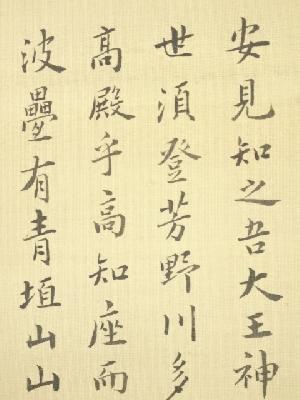 安見知之吾大王神
世須登芳野川多
高殿乎高知座而
波疊有青垣山山